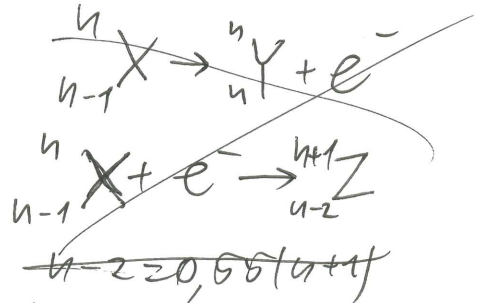 ⁿₙ₋₁X → ⁿₙY + e⁻
ⁿₙ₋₁X + e⁻ → ⁿ⁺¹ₙ₋₂Z
n-2=0,55(n+1)